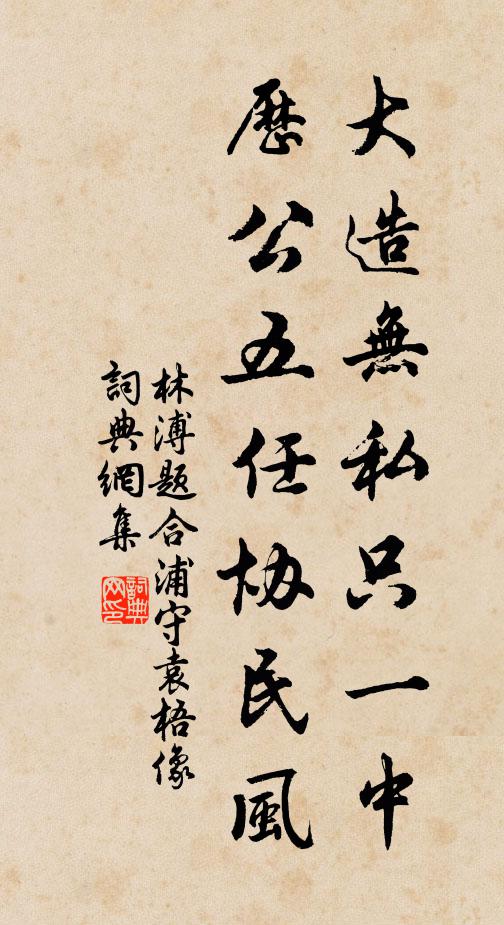 大造無私只一中
歷公五任協民風
林溥題合浦守袁梧像
詞典網集
詞典網印